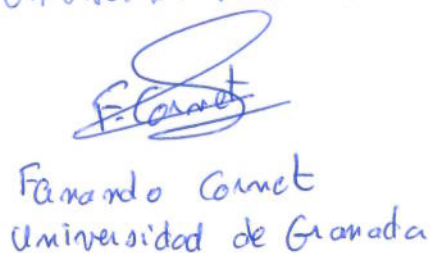 F. Cornet
Fernando Cornet
Universidad de Granada